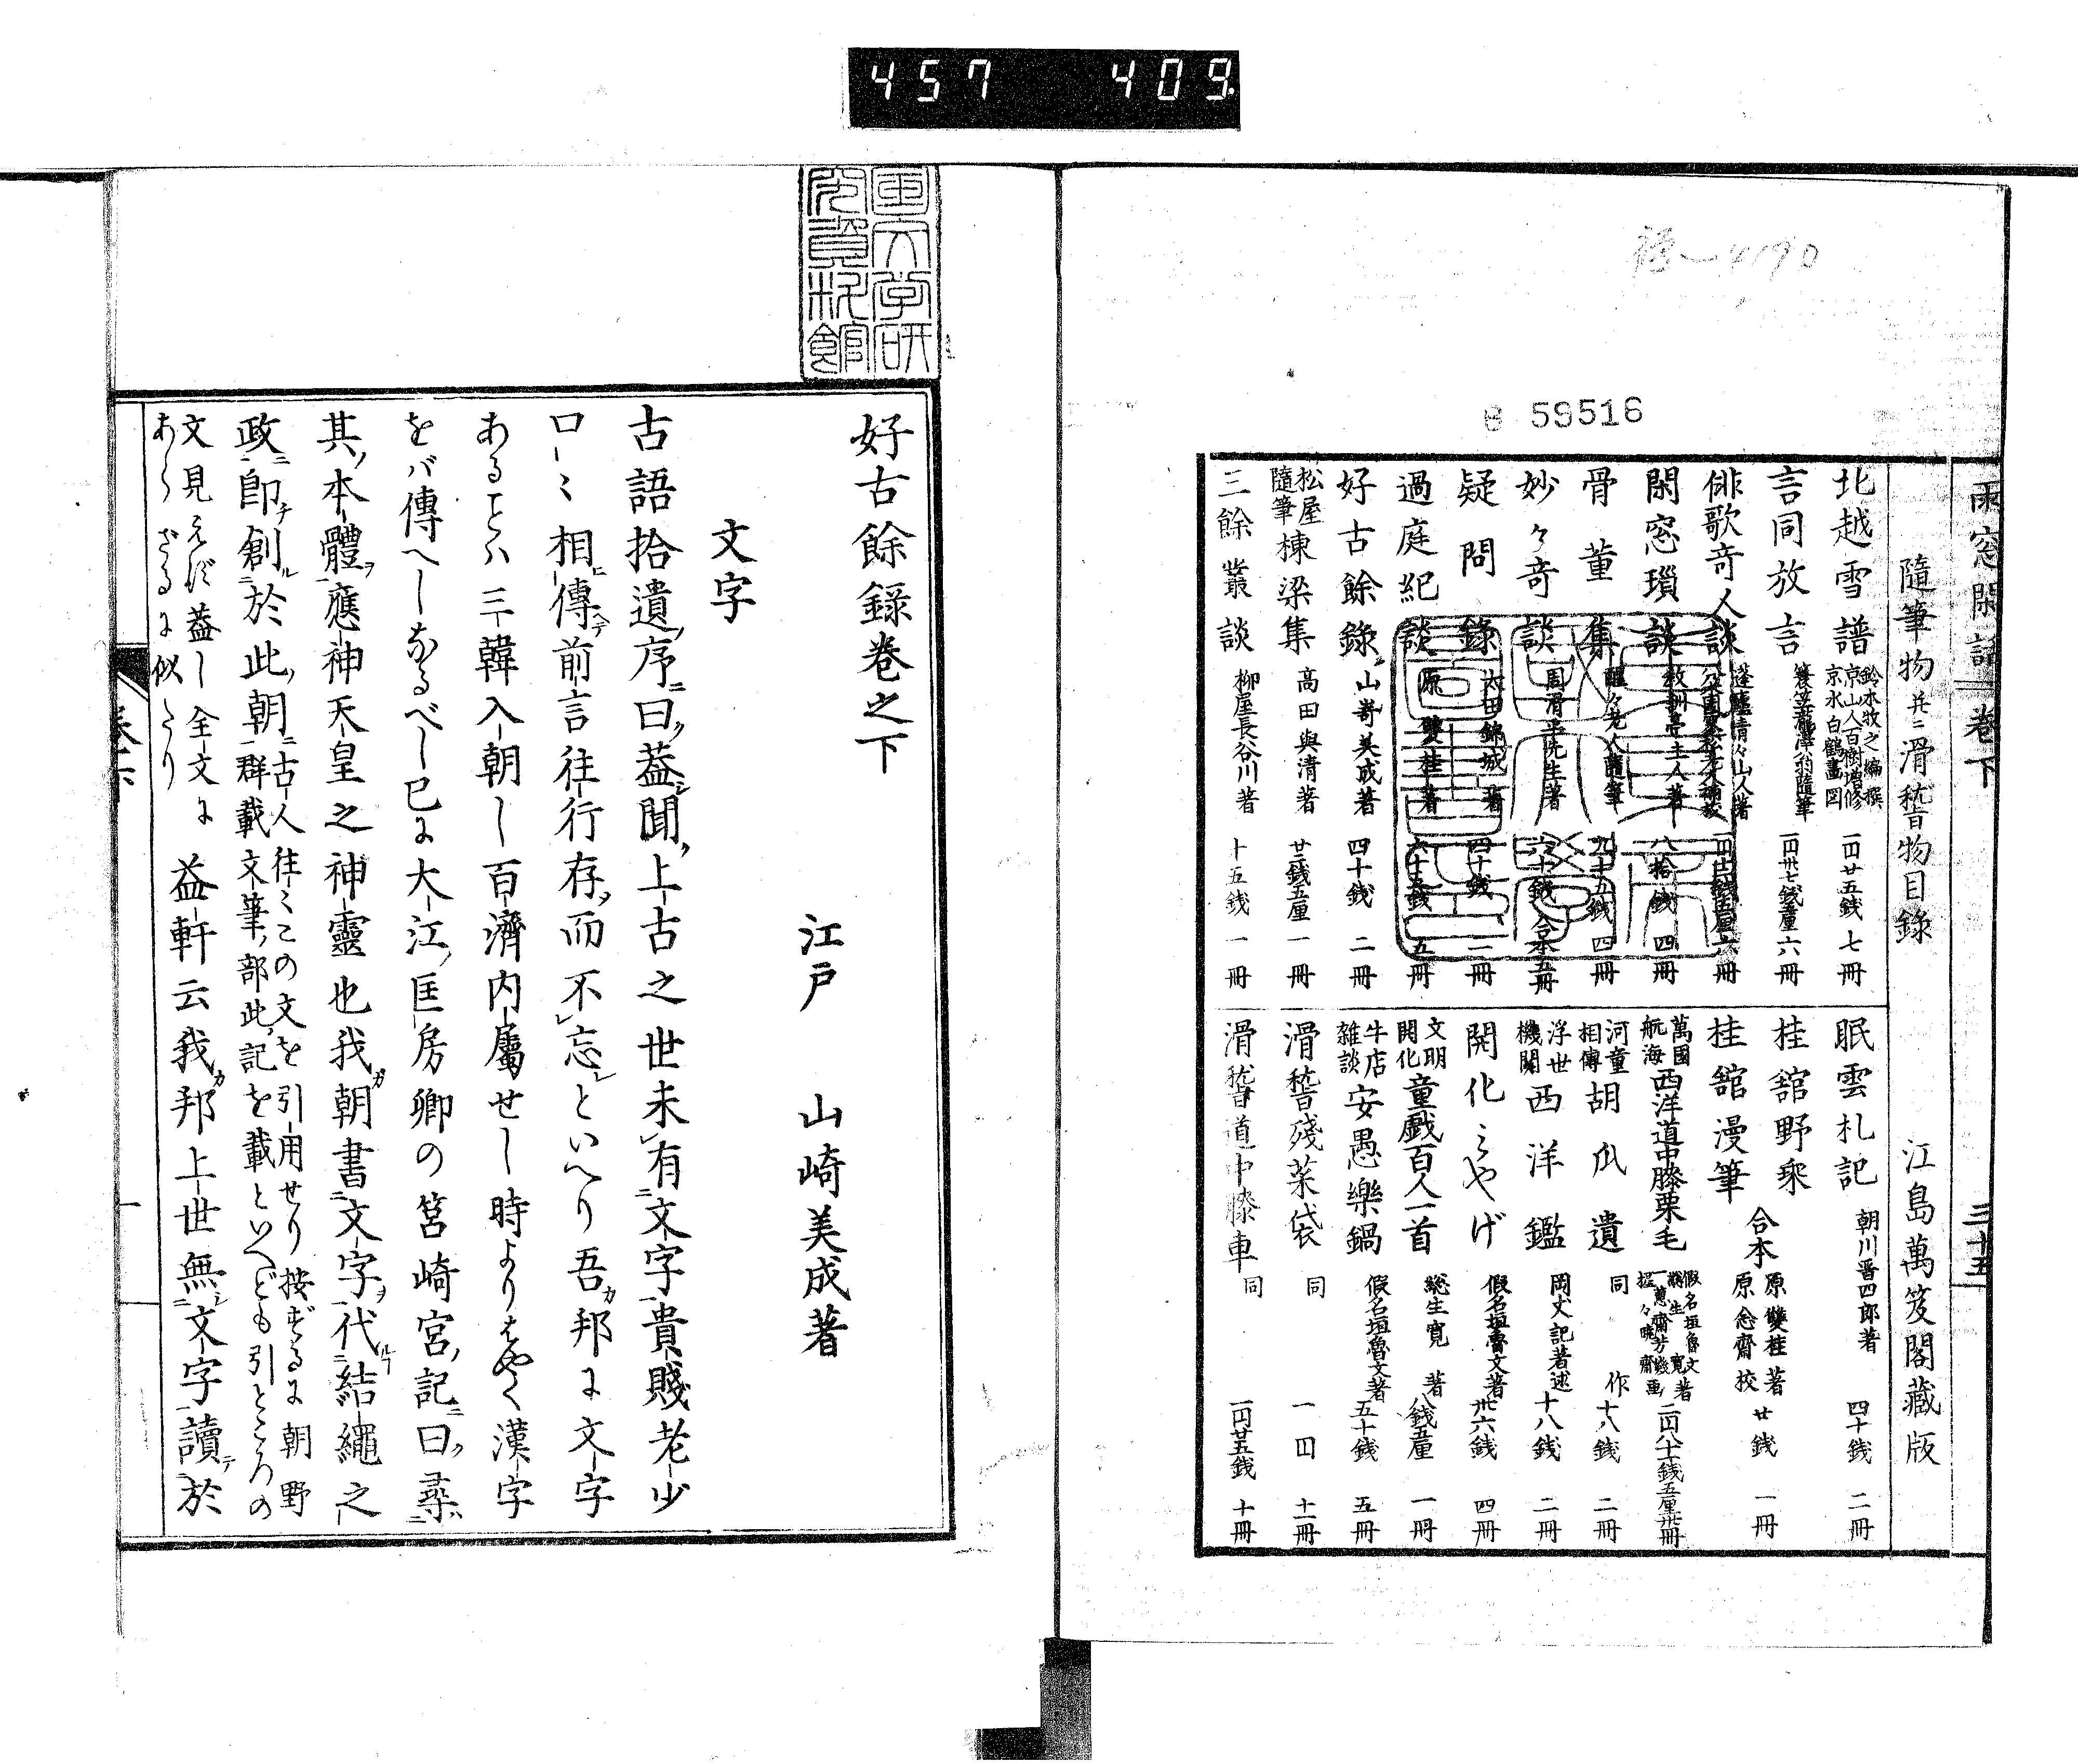 457 409
59516
雨窓閑話 卷下 三十五
隨筆物并ニ滑稽物目錄 江島萬笈閣藏版
北越雪譜 鈴木牧之編撰 京山人百樹増修 京水白鶴畵図 一円廿五銭 七冊
言同放言 蓑笠瀧澤翁隨筆 六冊
俳歌竒人談 蓬廬青々山人著 六冊
閑窓瑣談 教訓亭主人著 八拾銭 四冊
骨董集 醒々老人隨筆 九十五銭 四冊
妙々竒談 周滑平先生著 六十銭 合本五冊
疑問錄 太田錦城著 四十銭 二冊
過庭紀談 原雙桂著 六十五銭 五冊
好古餘錄 山嵜美成著 四十銭 二冊
松屋隨筆棟梁集 高田與清著 廿二銭五厘 一冊
三餘叢談 柳屋長谷川著 十五銭 一冊
眠雲札記 朝川晋四郎著 四十銭 二冊
桂舘野乘
桂舘漫筆 合本 原雙桂著 原念齋校 廿銭 一冊
萬國航海西洋道中膝栗毛 假名垣魯文 總生寛著 一蕙齋芳幾 猩々曉齋画 二円八十銭五厘 卅冊
河童相傳胡瓜遺 同作 十八銭 二冊
浮世機關西洋鑑 岡丈記著述 十八銭 二冊
開化ミやげ 假名垣魯文著 卅六銭 四冊
文明開化童戯百人一首 総生寛著 八銭五厘 一冊
牛店雑談安愚樂鍋 假名垣魯文著 五十銭 五冊
滑稽殘菜袋 同 一円 十一冊
滑稽道中膝車 同 一円廿五銭 十冊
好古餘錄卷之下
江戸 山崎美成著
文字
古語拾遺序曰蓋聞上古之世未有文字貴賤老少
口々相傳前言徃行存而不忘といへり吾邦に文字
あることハ三韓入朝し百濟内屬せし時よりはやく漢字
をバ傳へしなるべし已に大江匡房卿の筥崎宮記曰尋
其本體應神天皇之神靈也我朝書文字代結繩之
政即創於此朝 古人往々この文を引用せり按ずるに朝野
群載文筆部此記を載といへども引ところの
文見えず蓋し全文に
あらざるに似たり
益軒云我邦上世無文字讀於